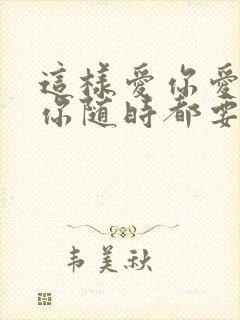 這樣愛你愛
你随時都要
韦美秋